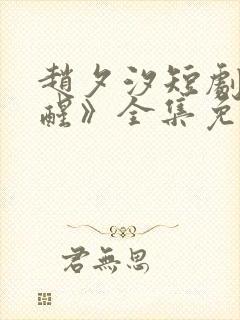 趙夕汐短劇
醒》全集免
君無思